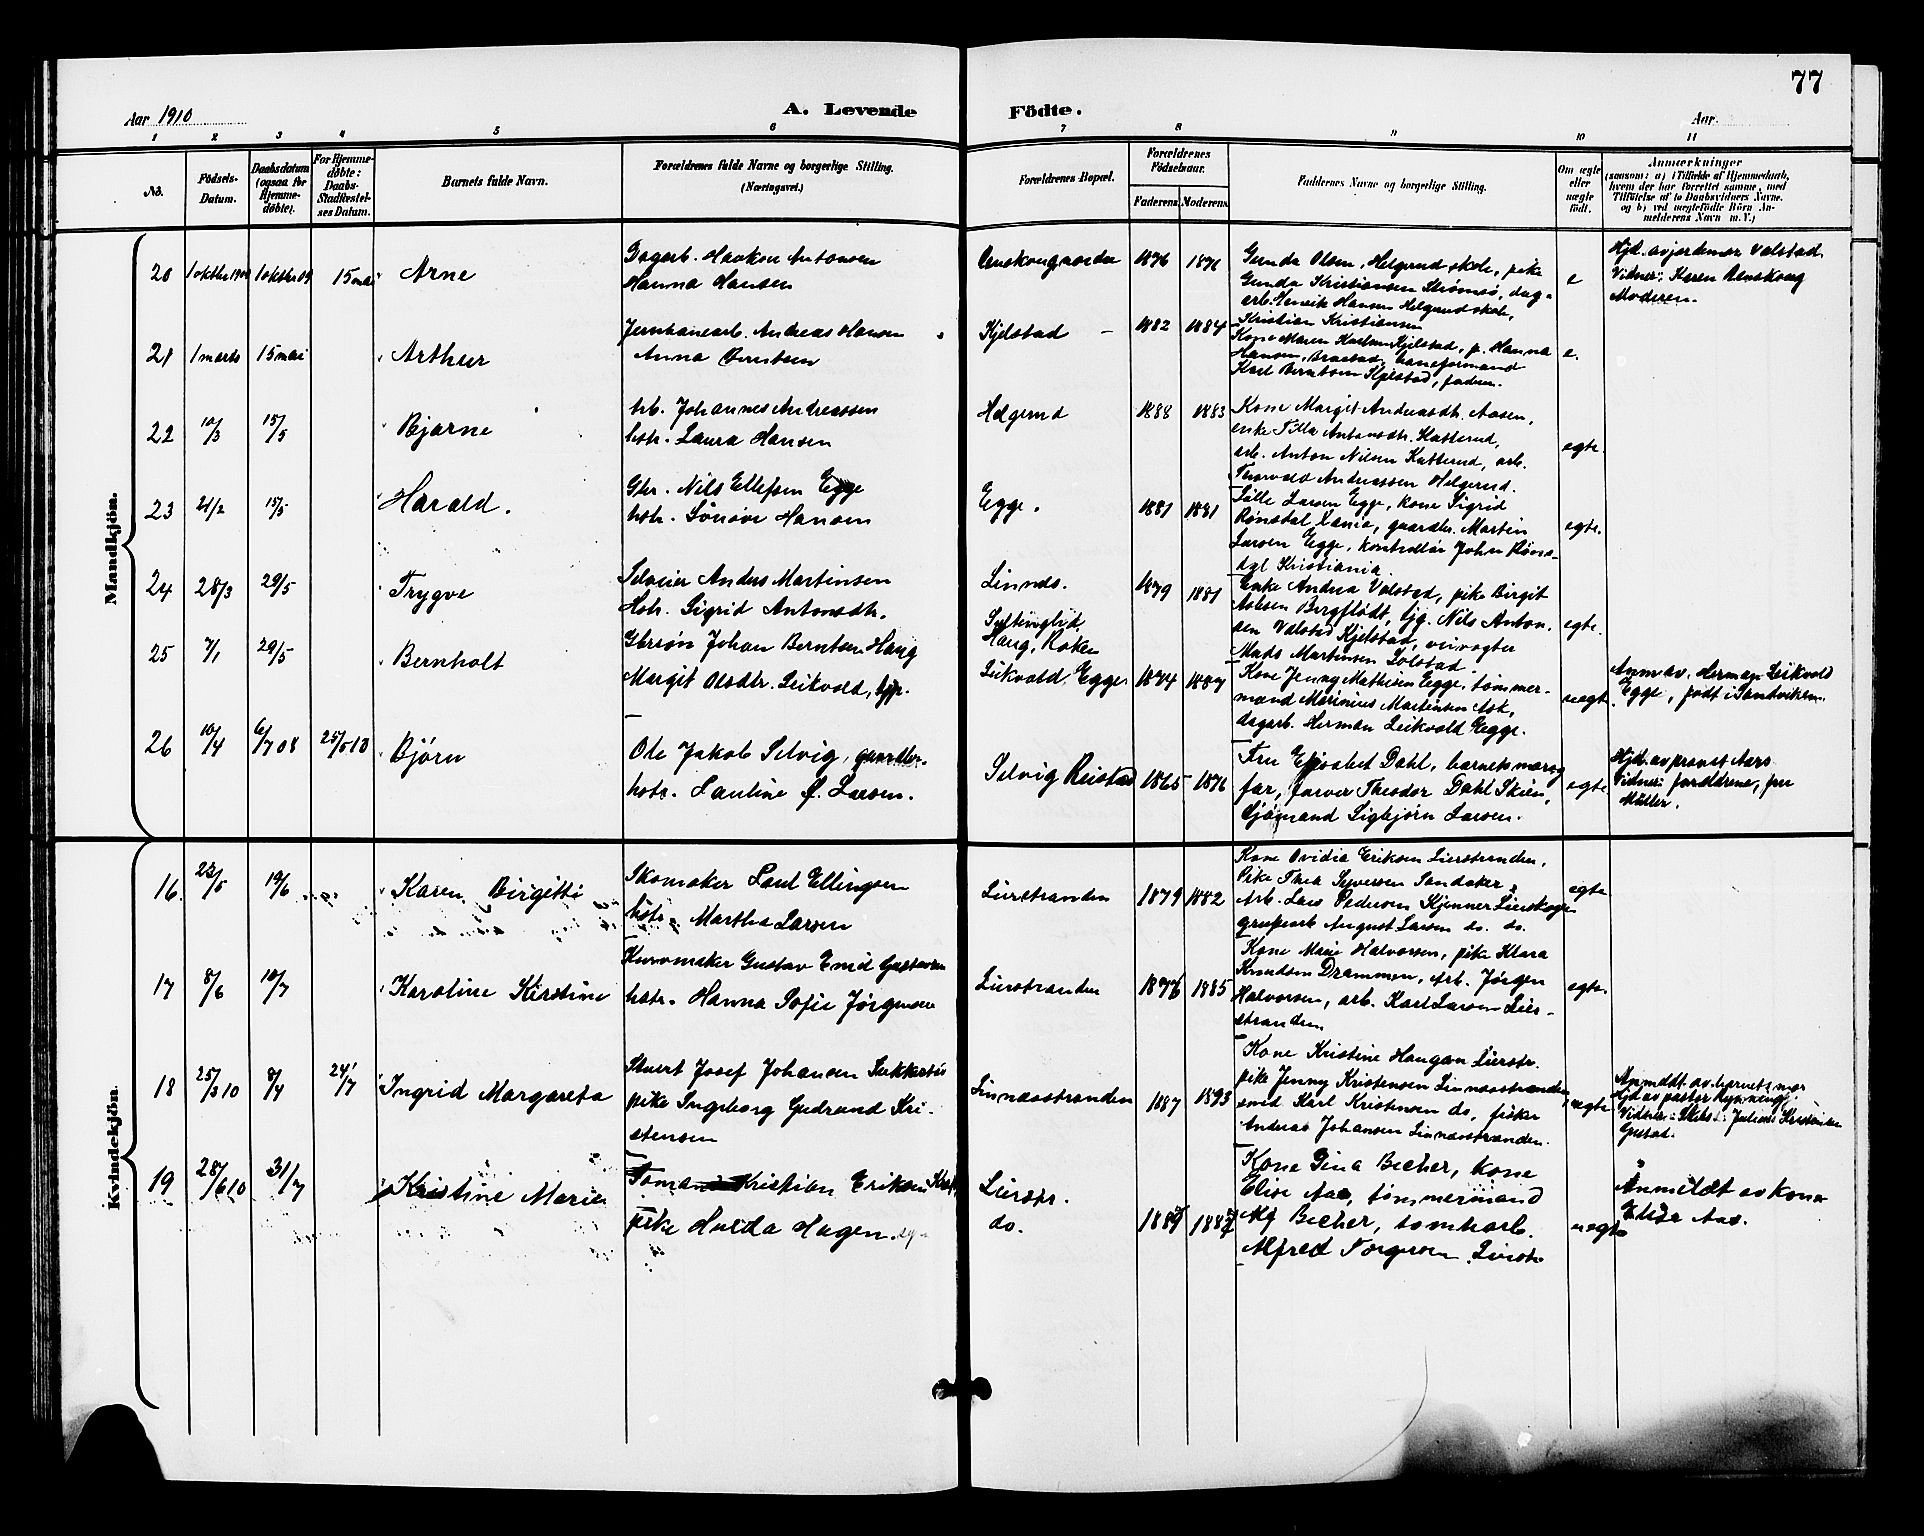 77
Aar 1910
A. Levende
Födte.
Aar
1 2 3 4 5 6 7 8 9 10 11
No.
Födsels-
Datum.
Daabsdatum
(ogsaa for
Hjemme-
döbte).
For Hjemme-
döbte:
Daabs-
Stadfæstel-
ses Datum.
Barnets fulde Navn.
Forældrenes fulde Navne og borgerlige Stilling.
(Næringsvei.)
Forældrenes Bopæl.
Forældrenes
Födselsaar.
Faderens Moderens
Faddernes Navne og borgerlige Stilling.
Om ægte
eller
uægte
födt.
Anmærkninger
(saasom: a) i Tilfælde af Hjemmedaab,
hvem der har forrettet samme, med
Tilföielse af to Daabsvidners Navne.
og b) ved uægtefödte Börn An-
melderens Navn m. V.)
Mandkjön.
20
1 oktbr 1909
1 oktbr 09
15 mai
Arne
Dagarb. Haakon Antonsen
Hanna Hansen
1876
1871
Gunda Olsen, Helgerud skole, pike
Gunda Kristiansen Strømsø, dag-
arb. Henrik Hansen Helgerud skole,
Kristian Kristiansen
e
Hjd. av jordemor Valstad
Vidner: Karen Renskoug
Moderen.
21
1 marts
15 mai
Arthur
Jernbanearb. Andreas Hansen
Anna Berntsen
Kjelstad
1882
1884
Kone Maren Karlsen Kjelstad, p. Hanna
Hansen, baneformand
Karl Berntsen Kjelstad, faderen.
e.
22
10/3
15/5
Bjarne
Arb. Johannes Andreassen
hstr. Laura Hansen
Helgerud
1888
1883
Kone Margit Andreasdtr. Aasen,
enke Tilla Antonsdtr. Katterud,
arb. Anton Nilsen Katterud, arb.
Thorvald Andreassen Helgerud.
egte.
23
21/2
15/5
Harald.
Gbr. Nils Ellefsen Egge
hstr. Sønøve Hansen
Egge.
1881
1881
Lille Larsen Egge, kone Sigrid
Rønsdal Xania, gaardbr. Martin
Larsen Egge, kontrollør Johan Røns-
dal Kristiania.
egte.
24
28/3
29/5
Trygve
Selveier Anders Martinsen
Hstr. Sigrid Antonsdtr.
Linnes.
1879
1881
Enke Andrea Valstad, pike Birgit
Aslesen Bergflødt, bjg. Nils Anton-
sen Valstad Kjelstad, veivogter
Mads Martinsen Solstad.
egte.
25
7/1
29/5
Bernholt
Gbrsøn Johan Berntsen Haug
Margit Olsdtr. Leikvold,
Haug, Røken
Leikvold Egge
1874
1887
Kone Jenny Mathisen Egge, tømmer-
mand Marinius Martinsen Ask,
dagarb. Herman Leikvold Egge.
uegte
Anm av. Herman Leikvold
Egge, født i Sandviken.
26
10/4
6/7 08
25/5 10
Bjørn
Ole Jakob Selvig, gaardbr.
hstr. Pauline f. Larsen.
Selvig Reistad
1865
1876
Fru Elisabet Dahl, barnets mor og
far, farver Theodor Dahl Skien,
Sjømand Sigbjørn Larsen.
egte
Hjd. av provst Aars
Vidner: forældrene, fru
Müller.
Kvindekjön.
16.
23/5
19/6
Karen Birgitte
Skomaker Paul Ellingsen
hstr. Martha Larsen
Lierstranden
1879
1882
Kone Ovidia Eriksen Lierstranden,
Pike Thea Syversen Sandaker,
Arb. Lars Pedersen Kjenner Lierskogen
grubearb August Larsen do. do.
egte
17
8/6
10/7
Karoline Kirstine
Kurvmaker Gustav Emil Gustavsen
hstr. Hanna Sofie Jørgensen
Lierstranden
1876
1885
Kone Marie Halvorsen, pike Klara
Knudsen Drammen, arb. Jørgen
Halvorsen, arb. Karl Larsen Lier-
stranden
egte.
18
25/3 10
8/4
24/7
Ingrid Margareta
Stuert Josef Johansen
pike Ingeborg Gudrund Kri-
stensen
Linnesstranden
1887
1893
Kone Kristine Haugan Lierstr.
pike Jenny Kristensen Linnesstranden
smed Karl Kristensen do, fisker
Andreas Johansen Linnesstranden.
uegte
Anmeldt av barnets mor
Hjd av pastor Rynning.
Gustad.
19
28/6 10
31/7
Kristine Marie
Kristian Eriksen
pike Hulda Hagen.
Lierstr.
do.
Kone Gina Becher, kone
Elise Aas, tømmermand
Alf Becher, tomtearb.
Alfred Torgersen Lierstr
uegte
Anmeldt av kone
Elise Aas.